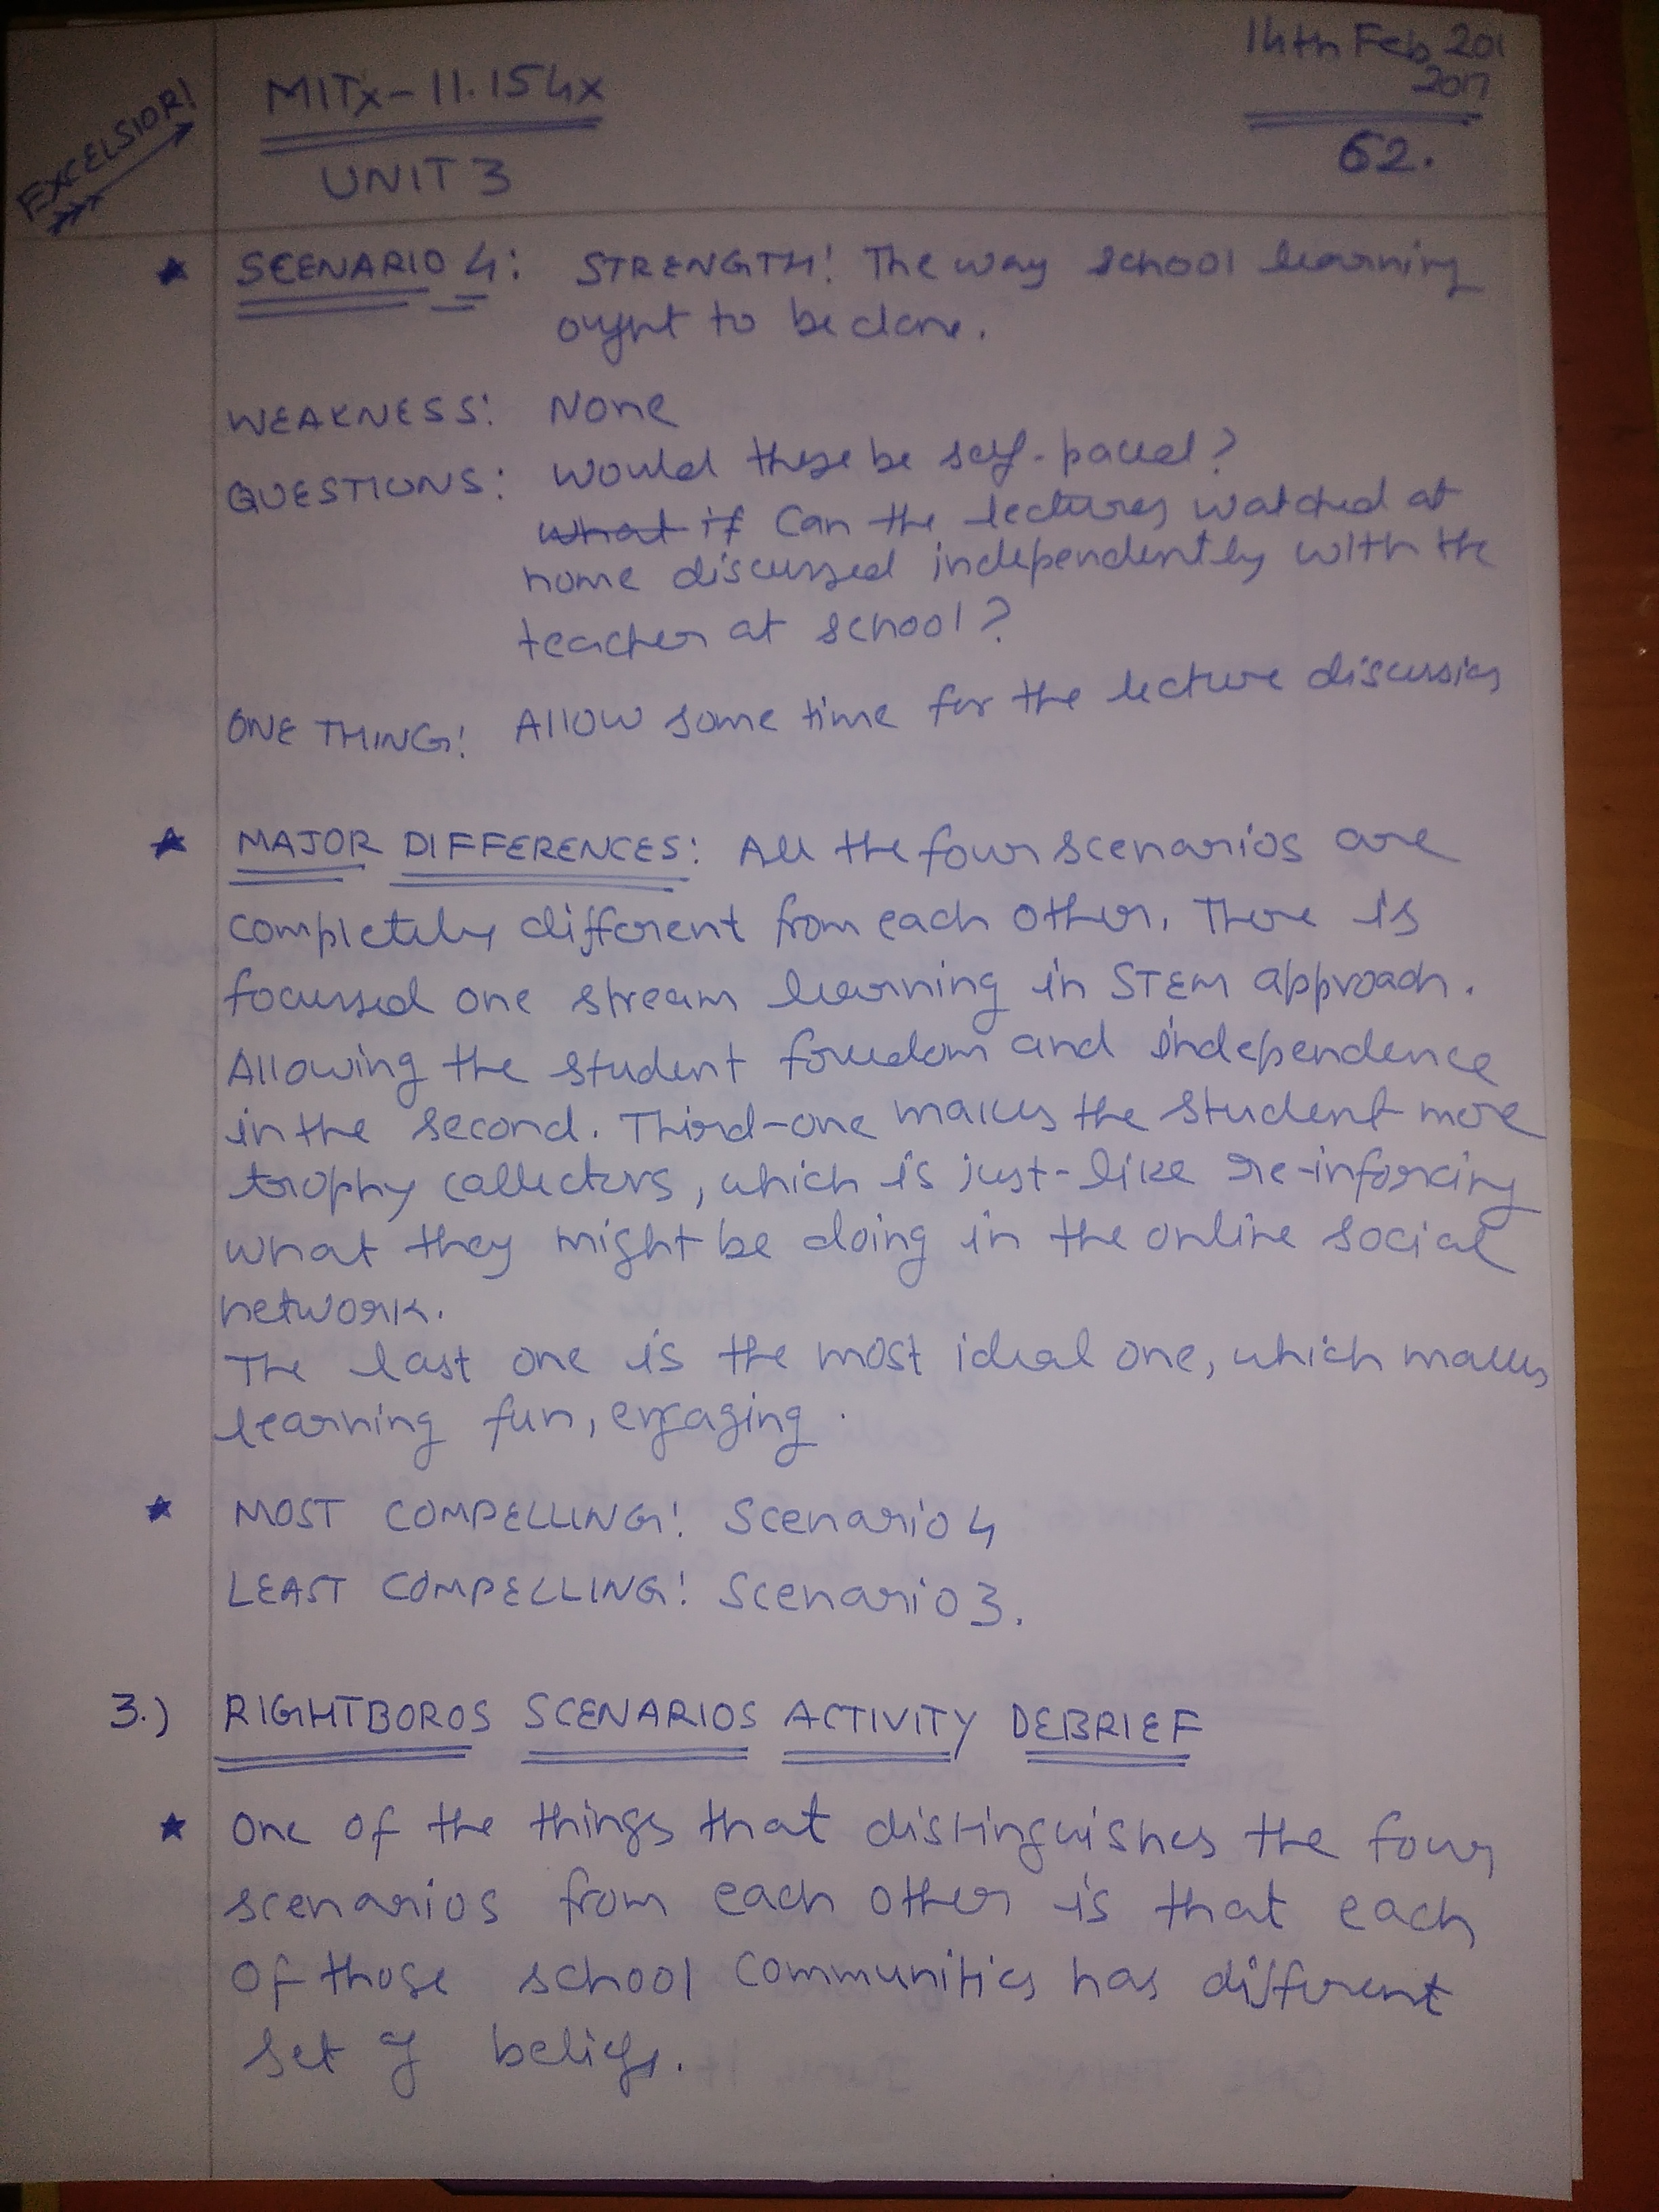 EXCELSIOR!
MITx-11.154x
UNIT 3
14th Feb 201
2017
62.
★ SCENARIO 4: STRENGTH! The way school learning
ought to be done.
WEAKNESS: None
QUESTIONS: Would these be self-paced?
What if Can the lectures watched at
home discussed independently with the
teacher at school?
ONE THING! Allow some time for the lecture discussion
★ MAJOR DIFFERENCES: All the four scenarios are
completely different from each other. There is
focussed one stream learning in STEM approach.
Allowing the student freedom and independence
in the second. Third-one makes the student more
trophy collectors, which is just-like re-inforcing
what they might be doing in the online social
network.
The last one is the most ideal one, which makes
learning fun, engaging.
★ MOST COMPELLING! Scenario 4
LEAST COMPELLING! Scenario 3.
3.) RIGHTBOROS SCENARIOS ACTIVITY DEBRIEF
★ One of the things that distinguishes the four
scenarios from each other is that each
of those school communities has different
set of beliefs.